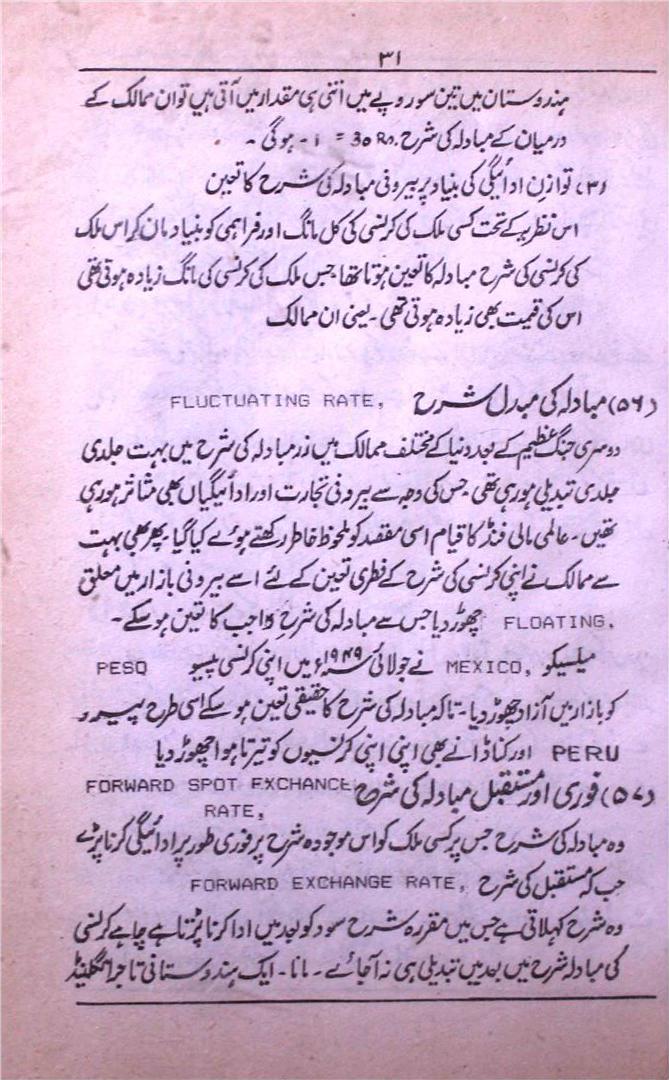 ۳۱
ہندوستان میں تین سو روپے میں اتنی ہی مقدار میں آتی ہیں تو ان ممالک کے
درمیان کے مبادلہ کی شرح 30 Rs. = ۱ - ہوگی ۔
(۳) توازنِ ادائیگی کی بنیاد پر بیرونی مبادلہ کی شرح کا تعین
اس نظریہ کے تحت کسی ملک کی کرنسی کی کل مانگ اور فراہمی کو بنیاد مان کر اس ملک
کی کرنسی کی شرح مبادلہ کا تعین ہوتا تھا جس ملک کی کرنسی کی مانگ زیادہ ہوتی تھی
اس کی قیمت بھی زیادہ ہوتی تھی ۔ یعنی ان ممالک
(۵۶) مبادلہ کی مبدل شرح FLUCTUATING RATE,
دوسری جنگ عظیم کے بعد دنیا کے مختلف ممالک میں زر مبادلہ کی شرح میں بہت جلدی
جلدی تبدیلی ہو رہی تھی جس کی وجہ سے بیرونی تجارت اور ادائیگیاں بھی متاثر ہو رہی
تھیں ۔ عالمی مالی فنڈ کا قیام اسی مقصد کو ملحوظ خاطر رکھتے ہوئے کیا گیا ۔ پھر بھی بہت
سے ممالک نے اپنی کرنسی کی شرح کے فطری تعین کے لئے اسے بیرونی بازار میں معلق
FLOATING, چھوڑ دیا جس سے مبادلہ کی شرحِ واجب کا تعین ہو سکے ۔
میکسیکو MEXICO, نے جولائی ۱۹۴۹ء میں اپنی کرنسی پیسو PESO
کو بازار میں آزاد چھوڑ دیا ۔ تاکہ مبادلہ کی شرح کا حقیقی تعین ہو سکے اسی طرح پیرو
PERU اور کناڈا نے بھی اپنی اپنی کرنسیوں کو تیرتا ہوا چھوڑ دیا
(۵۷) فوری اور مستقبل مبادلہ کی شرح FORWARD SPOT EXCHANGE
RATE,
وہ مبادلہ کی شرح جس پر کسی ملک کو اس موجودہ شرح پر فوری طور پر ادائیگی کرنا پڑے
جب کہ مستقبل کی شرح FORWARD EXCHANGE RATE,
وہ شرح کہلاتی ہے جس میں مقررہ شرح سود کو بعد میں ادا کرنا پڑتا ہے چاہے کرنسی
کی مبادلہ شرح میں بعد میں تبدیلی ہی نہ آجائے ۔ مانا ۔ ایک ہندوستانی تاجر انگلینڈ